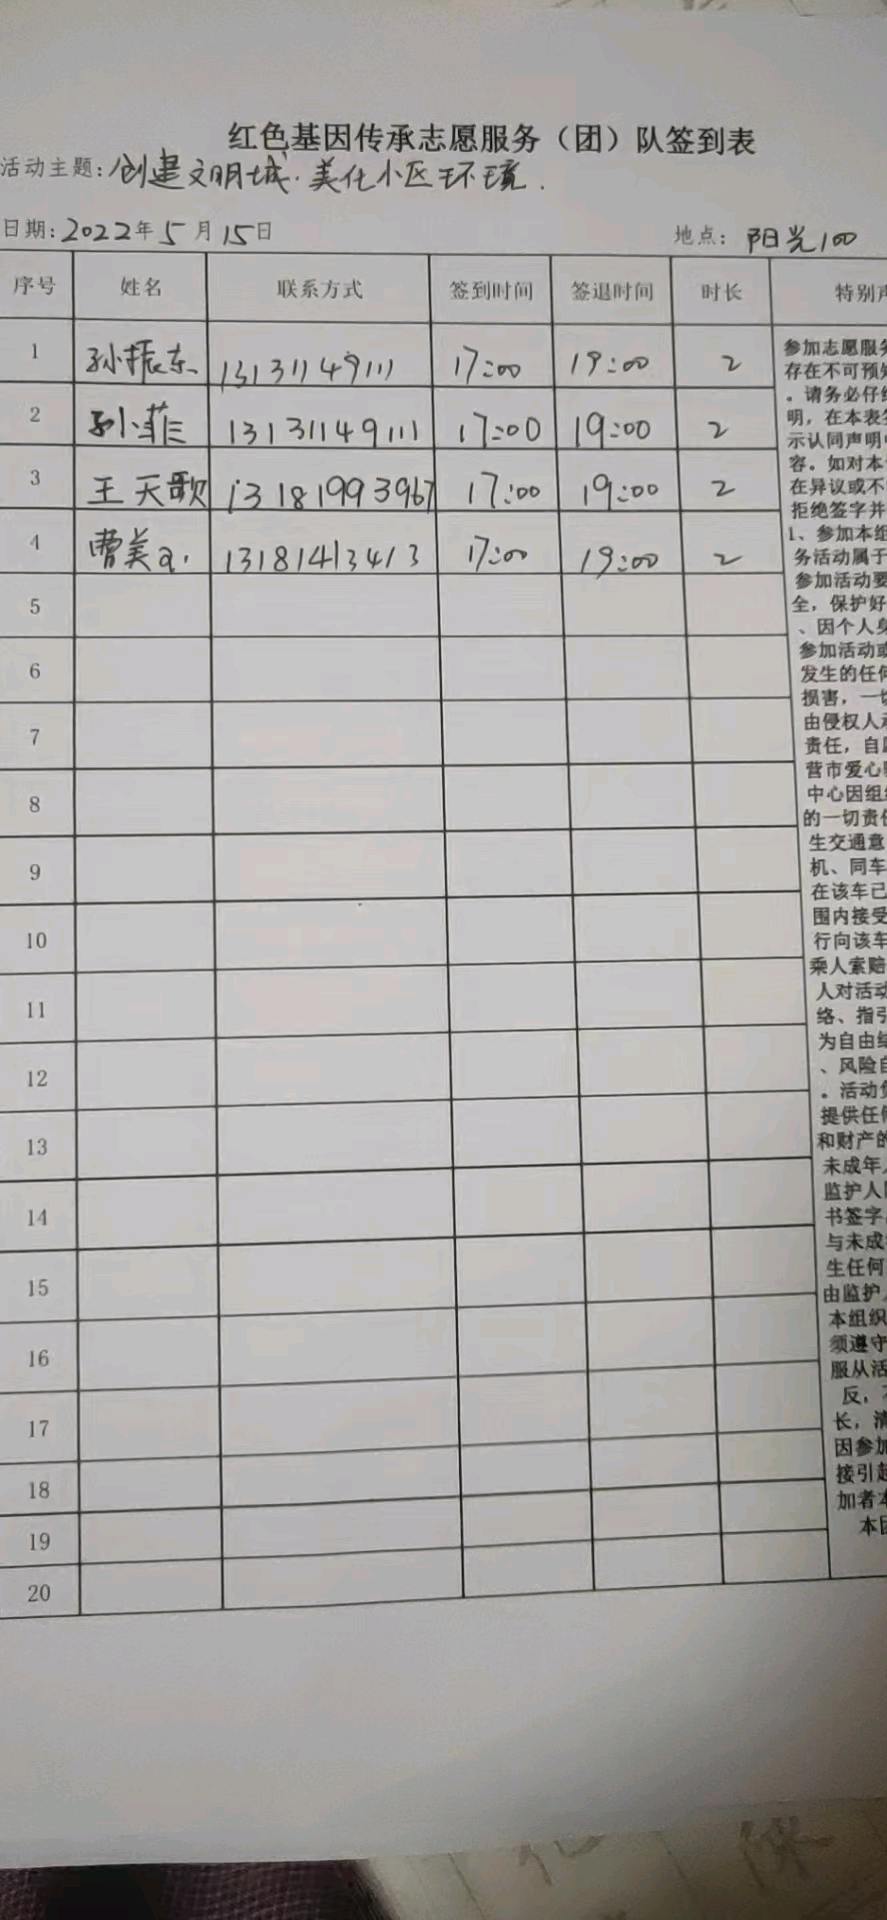 红色基因传承志愿服务（团）队签到表
活动主题:创建文明城·美化小区环境.
日期:2022年5月15日 地点: 阳光100
序号 姓名 联系方式 签到时间 签退时间 时长 特别声
1 孙振东 13131149111 17:00 19:00 2
2 孙菲 13131149111 17:00 19:00 2
3 王天歌 13181993967 17:00 19:00 2
4 曹美 13181413413 17:00 19:00 2
5
6
7
8
9
10
11
12
13
14
15
16
17
18
19
20
参加志愿服务
存在不可预知
。请务必仔细
明，在本表签
示认同声明
容。如对本
在异议或不
拒绝签字并
1、参加本组
务活动属于
参加活动要
全，保护好
、因个人身
参加活动或
发生的任何
损害，一切
由侵权人承
责任，自愿
营市爱心
中心因组织
的一切责任
生交通意
机、同车
在该车已
围内接受
行向该车
乘人索赔
人对活动
络、指引
为自由结
、风险自
。活动负
提供任何
和财产的
未成年人
监护人
书签字
与未成
生任何
由监护人
本组织
须遵守
服从活
反，
长，清
因参加
接引起
加者本
本团